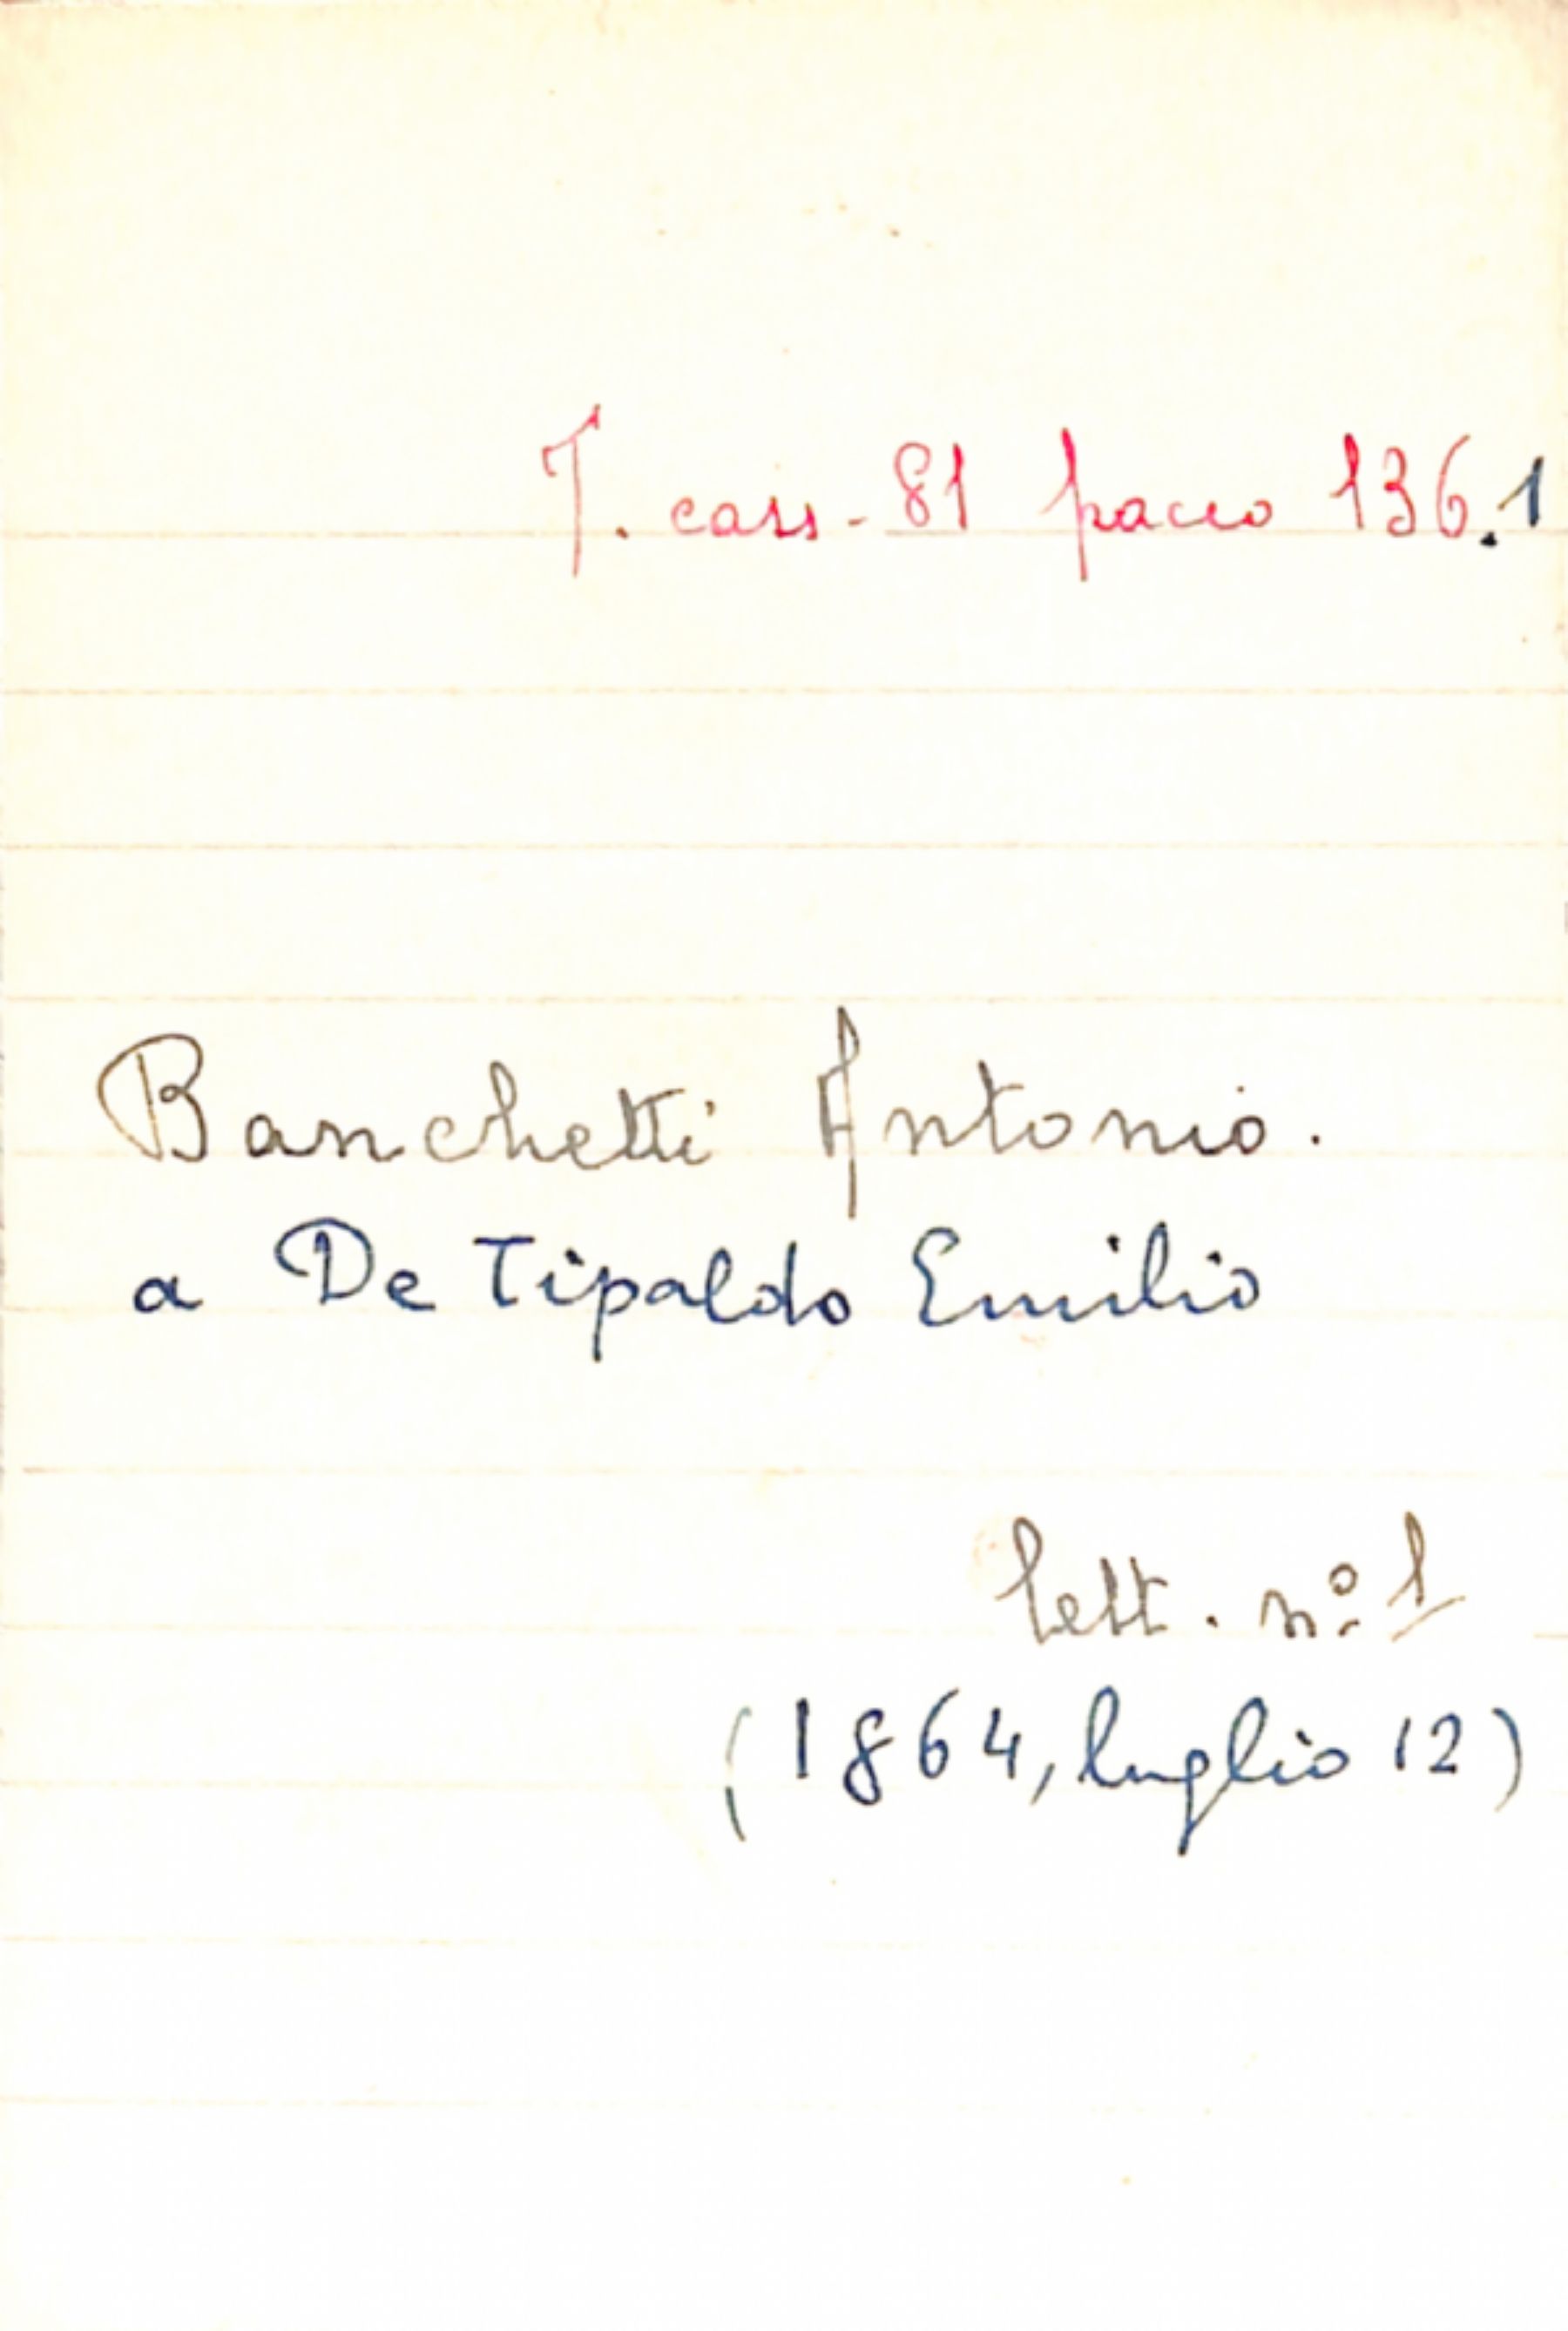 T. cass. 81 pacco 136.1
Banchetti Antonio.
a De Tipaldo Emilio
lett. nº 1
(1864, luglio 12)